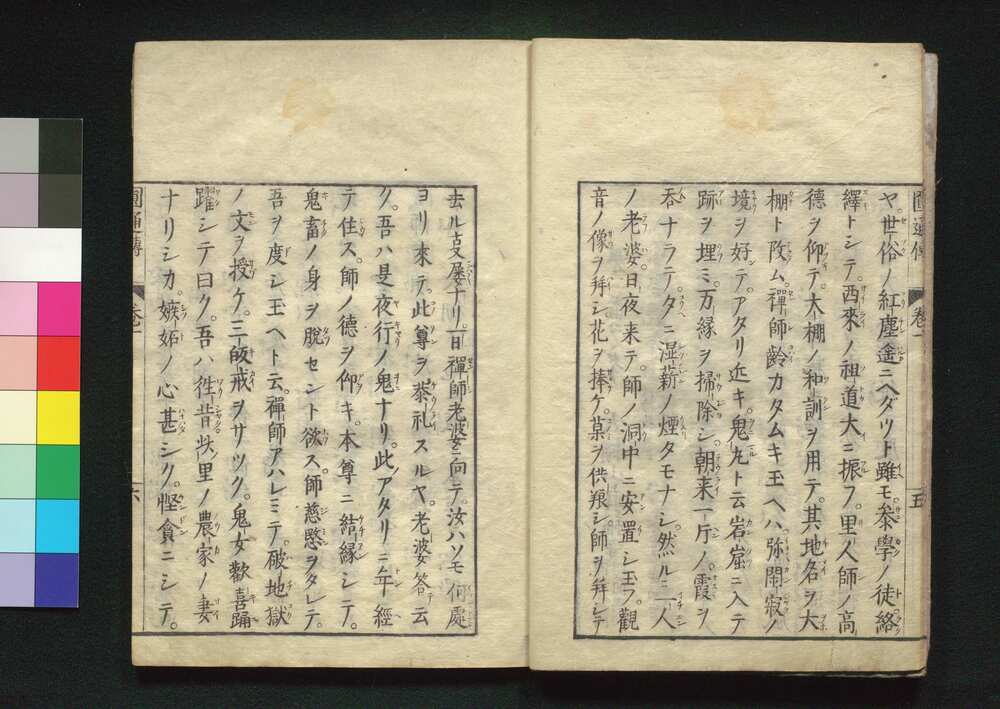 圓通傳 卷一 五
ヤ世俗ノ紅塵遙ニヘダツト雖モ。叅學ノ徒絡
繹トシテ。西來ノ祖道大ニ振フ。里人師ノ高
德ヲ仰テ。大棚ノ和訓ヲ用テ。其地名ヲ大
棚ト改ム。禪師齡カタムキ玉ヘハ弥閑寂ノ
境ヲ好テ。アタリ近キ。鬼丸ト云岩窟ニ入テ
跡ヲ埋ミ。万縁ヲ掃除シ。朝来一片ノ。霞ヲ
吞ナラテ。夕ニ湿薪ノ煙タモナシ。然ルニ一人
ノ老婆。日夜来テ。師ノ洞中ニ安置シ玉フ。觀
音ノ像ヲ拜シ。花ヲ捧ケ。菓ヲ供粮シ。師ヲ拜シテ
去ル支屡ナリ。一日禪師老婆ニ向テ。汝ハソモ何處
ヨリ來テ。此尊ヲ叅礼スルヤ。老婆答云
ク。吾ハ是夜行ノ鬼ナリ。此アタリニ年經
テ住ス。師ノ德ヲ仰キ。本尊ニ結縁シテ。
鬼畜ノ身ヲ脫セント欲ス。師慈愍ヲタレテ。
吾ヲ度シ玉ヘト云。禪師アハレミテ。破地獄
ノ文ヲ授ケ。三皈戒ヲサツク。鬼女歡喜踊
躍シテ曰ク。吾ハ徃昔此里ノ農家ノ妻
ナリシカ。嫉妬ノ心甚シク。慳貪ニシテ。
圓通傳 卷一 六